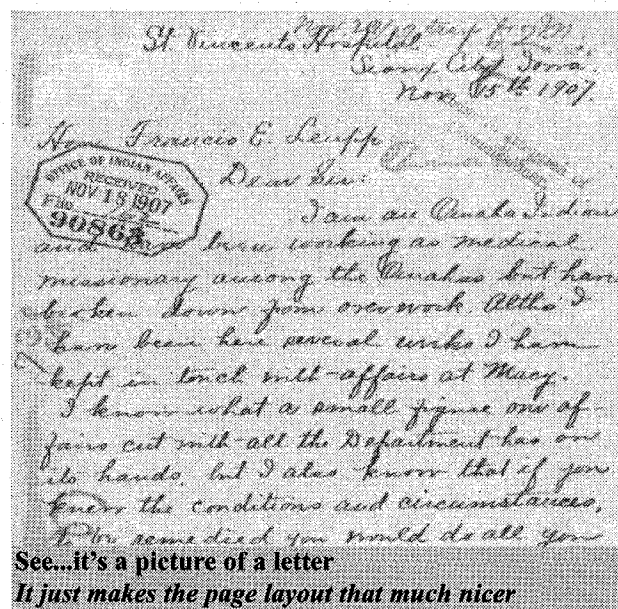 St. Vincents Hospital
Sioux City Iowa.
Nov. 15th 1907.
Hon Francis E. Leupp
Dear Sir:
OFFICE OF INDIAN AFFAIRS
RECEIVED
NOV 18 1907
File
90863
I am an Omaha Indian
and have been working as medical
missionary among the Omahas but have
broken down from overwork. Altho' I
have been here several weeks I have
kept in touch with affairs at Macy.
I know what a small figure our af-
fairs cut with all the Department has on
its hands, but I also know that if you
knew the conditions and circumstances,
to be remedied you would do all you
See...it's a picture of a letter
It just makes the page layout that much nicer